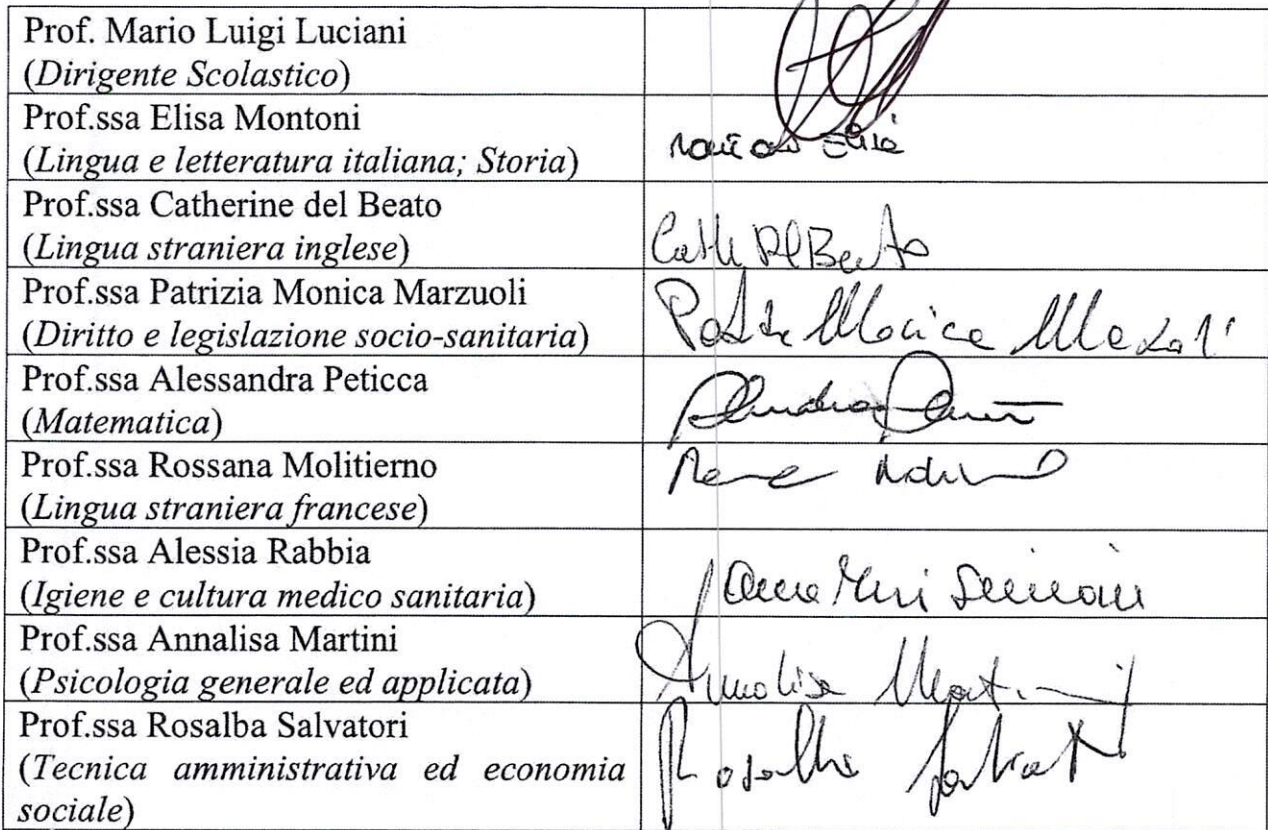 Prof. Mario Luigi Luciani
(Dirigente Scolastico)
Prof.ssa Elisa Montoni
(Lingua e letteratura italiana; Storia)
Prof.ssa Catherine del Beato
(Lingua straniera inglese)
Prof.ssa Patrizia Monica Marzuoli
(Diritto e legislazione socio-sanitaria)
Prof.ssa Alessandra Peticca
(Matematica)
Prof.ssa Rossana Molitierno
(Lingua straniera francese)
Prof.ssa Alessia Rabbia
(Igiene e cultura medico sanitaria)
Prof.ssa Annalisa Martini
(Psicologia generale ed applicata)
Annalisa Martini
Prof.ssa Rosalba Salvatori
(Tecnica amministrativa ed economia
sociale)